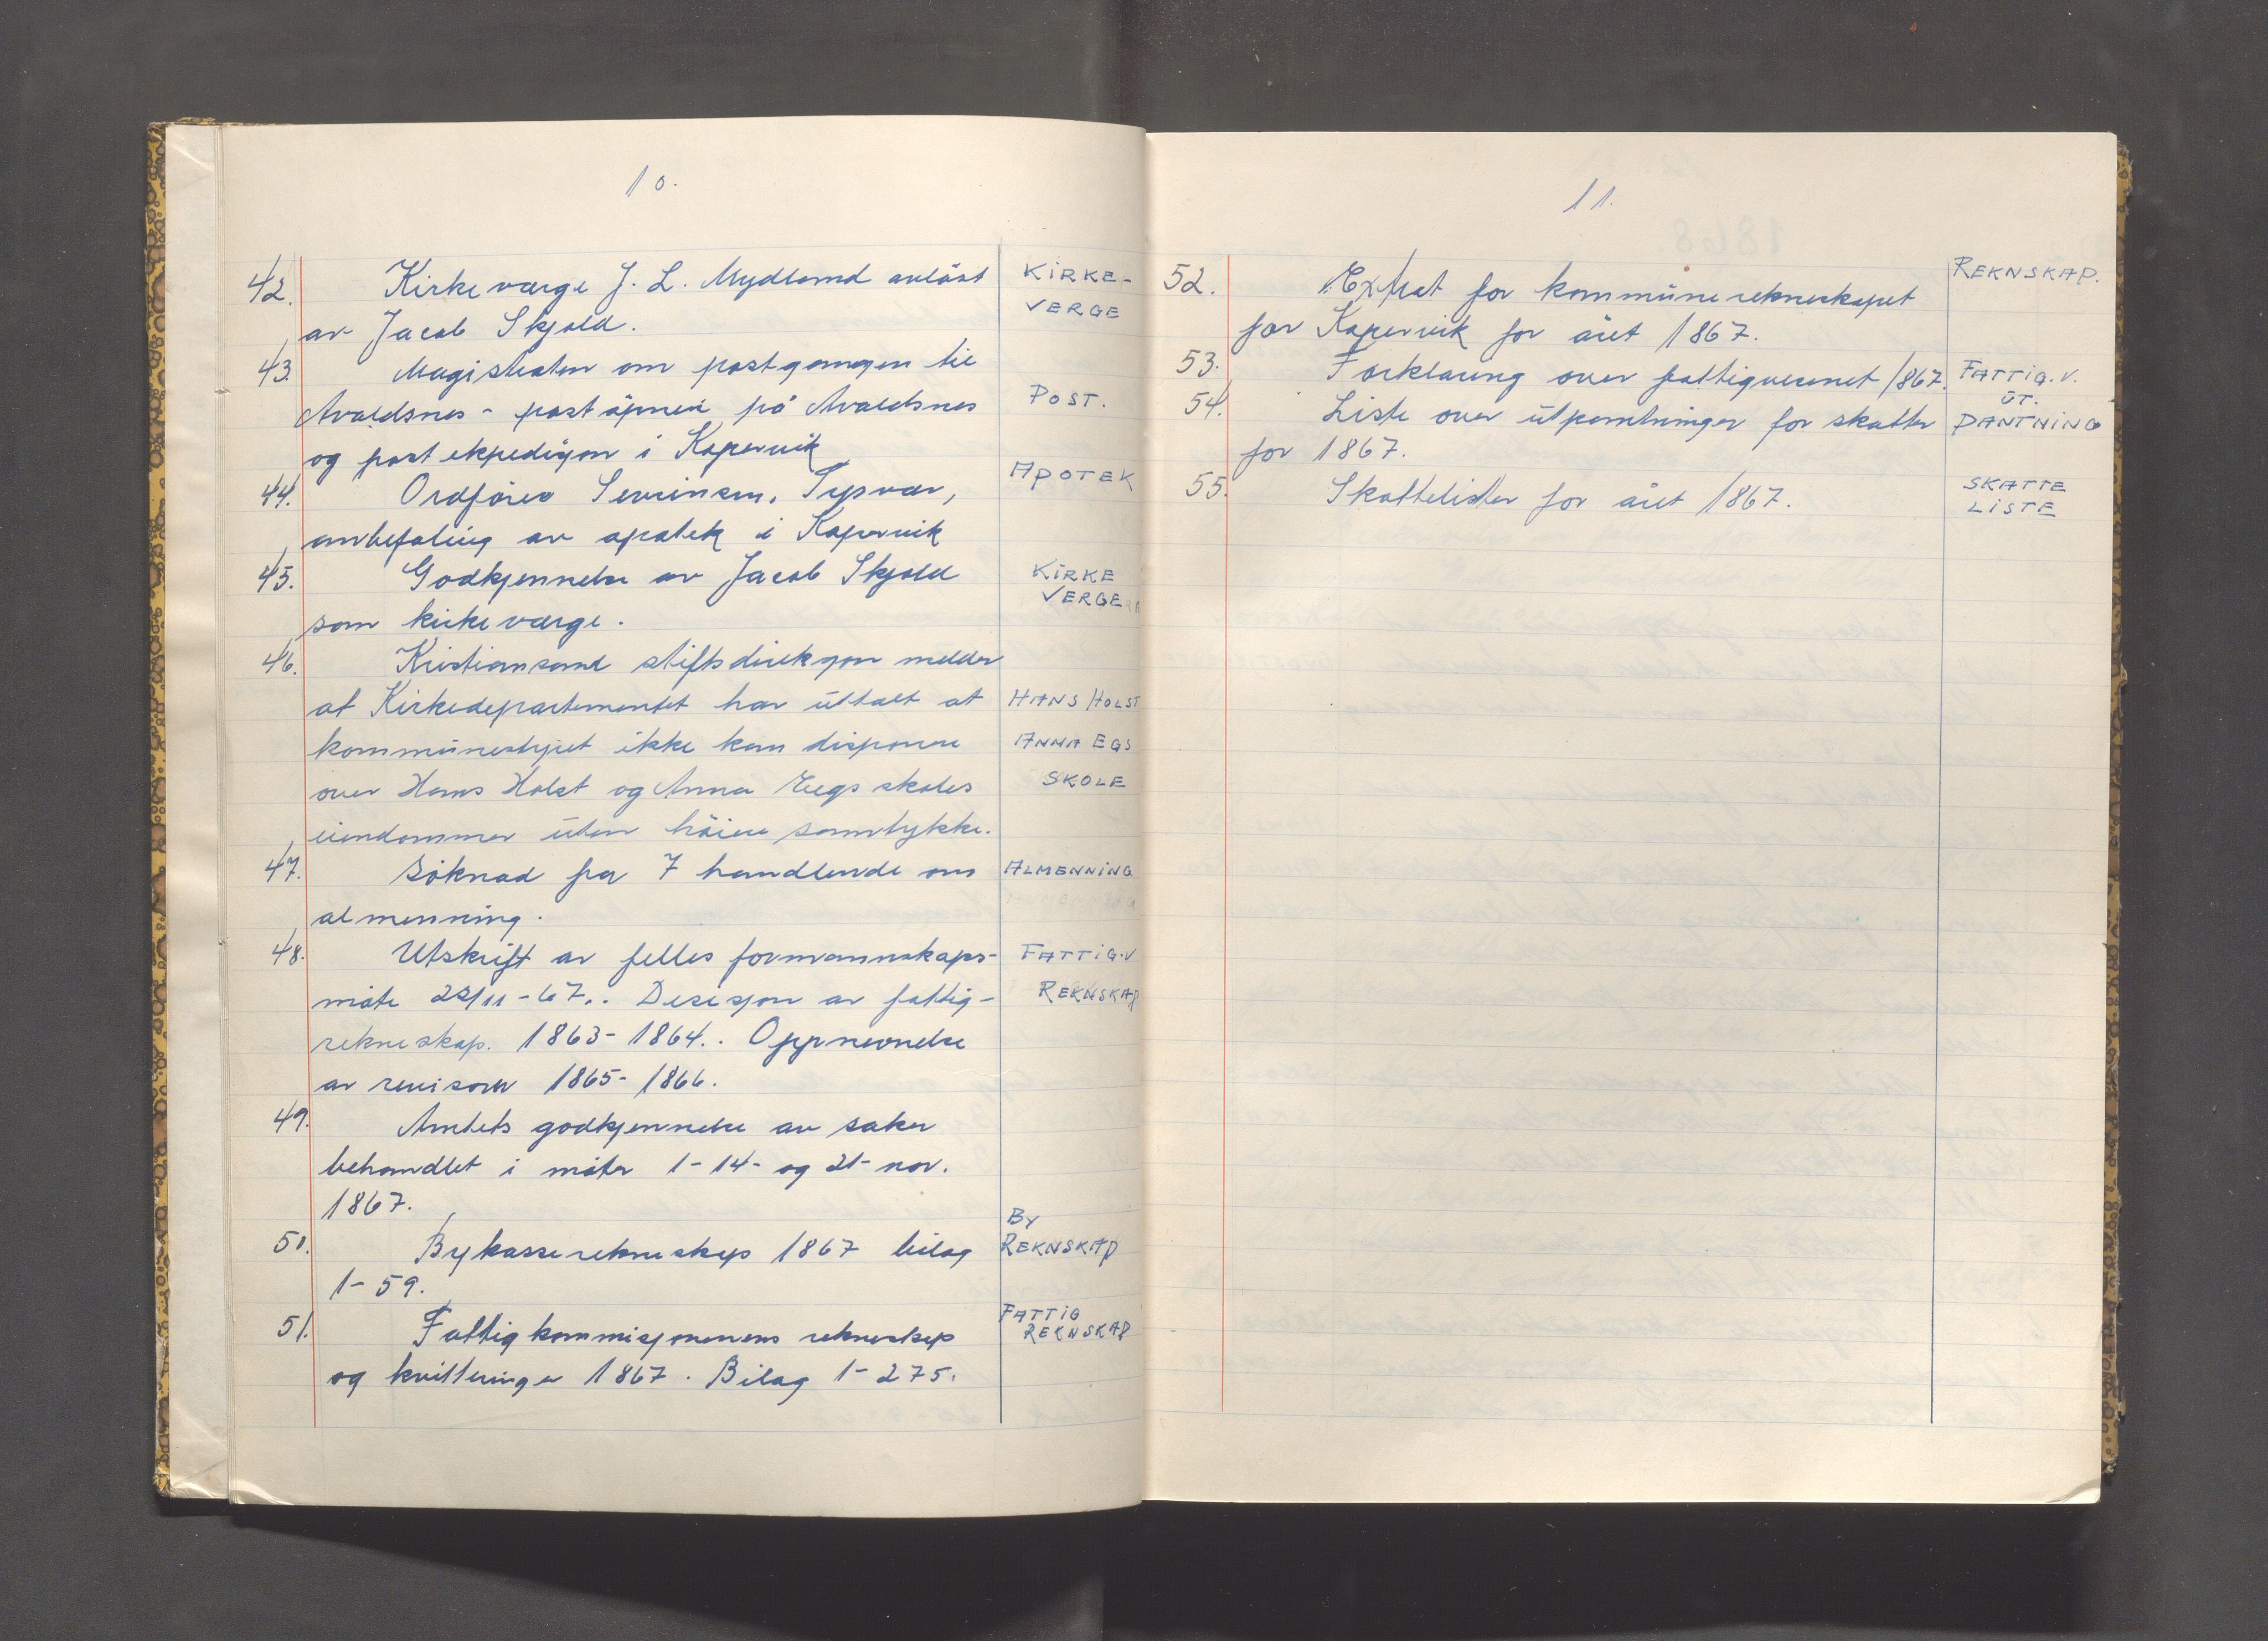 10.
42. Kirkeværge J. L. Mydland avløst KIRKE-
av Jacob Skjold. VERGE
43. Magistraten om postgangen til
Avaldsnes - poståpneri på Avaldsnes POST.
og postekpedisjon i Kopervik
44. Ordfører Sevrinsen, Tysvær, APOTEK
anbefaling av apotek i Kopervik
45. Godkjennelse av Jacob Skjold KIRKE
som kirkeværge. VERGE
46. Kristiansand stiftsdireksjon melder
at Kirkedepartementet har uttalt at HANS HOLST
kommunestyret ikke kan disponere ANNA EGS
over Hans Holst og Anna Eegs skoles SKOLE
eiendommer uten høiere samtykke.
47. Søknad fra 7 handlende om ALMENNING
almenning.
48. Utskrift av felles formannskaps- FATTIG.V
møte /11-67.. Desisjon av fattig- REKNSKAP
rekneskap. 1863-1864.. Oppnevnelse
av revisorer 1865-1866.
49. Amtets godkjennelse av saker
behandlet i møter 1-14- og 21- nov.
1867.
BY
50. Bykasserekneskap 1867 bilag REKNSKAP
1-59.
FATTIG
51. Fattigkommisjonenens rekneskap REKNSKAP
og kvitteringer 1867. Bilag 1-275.
11.
52. Extrat for kommunerekneskapet REKNSKAP.
for Kopervik for året 1867.
53. Forklaring over fattigvesenet 1867. FATTIG.V.
54. Liste over utpantninger for skatter UT.PANTNING
for 1867.
55. Skattelister for året 1867. SKATTE
LISTE